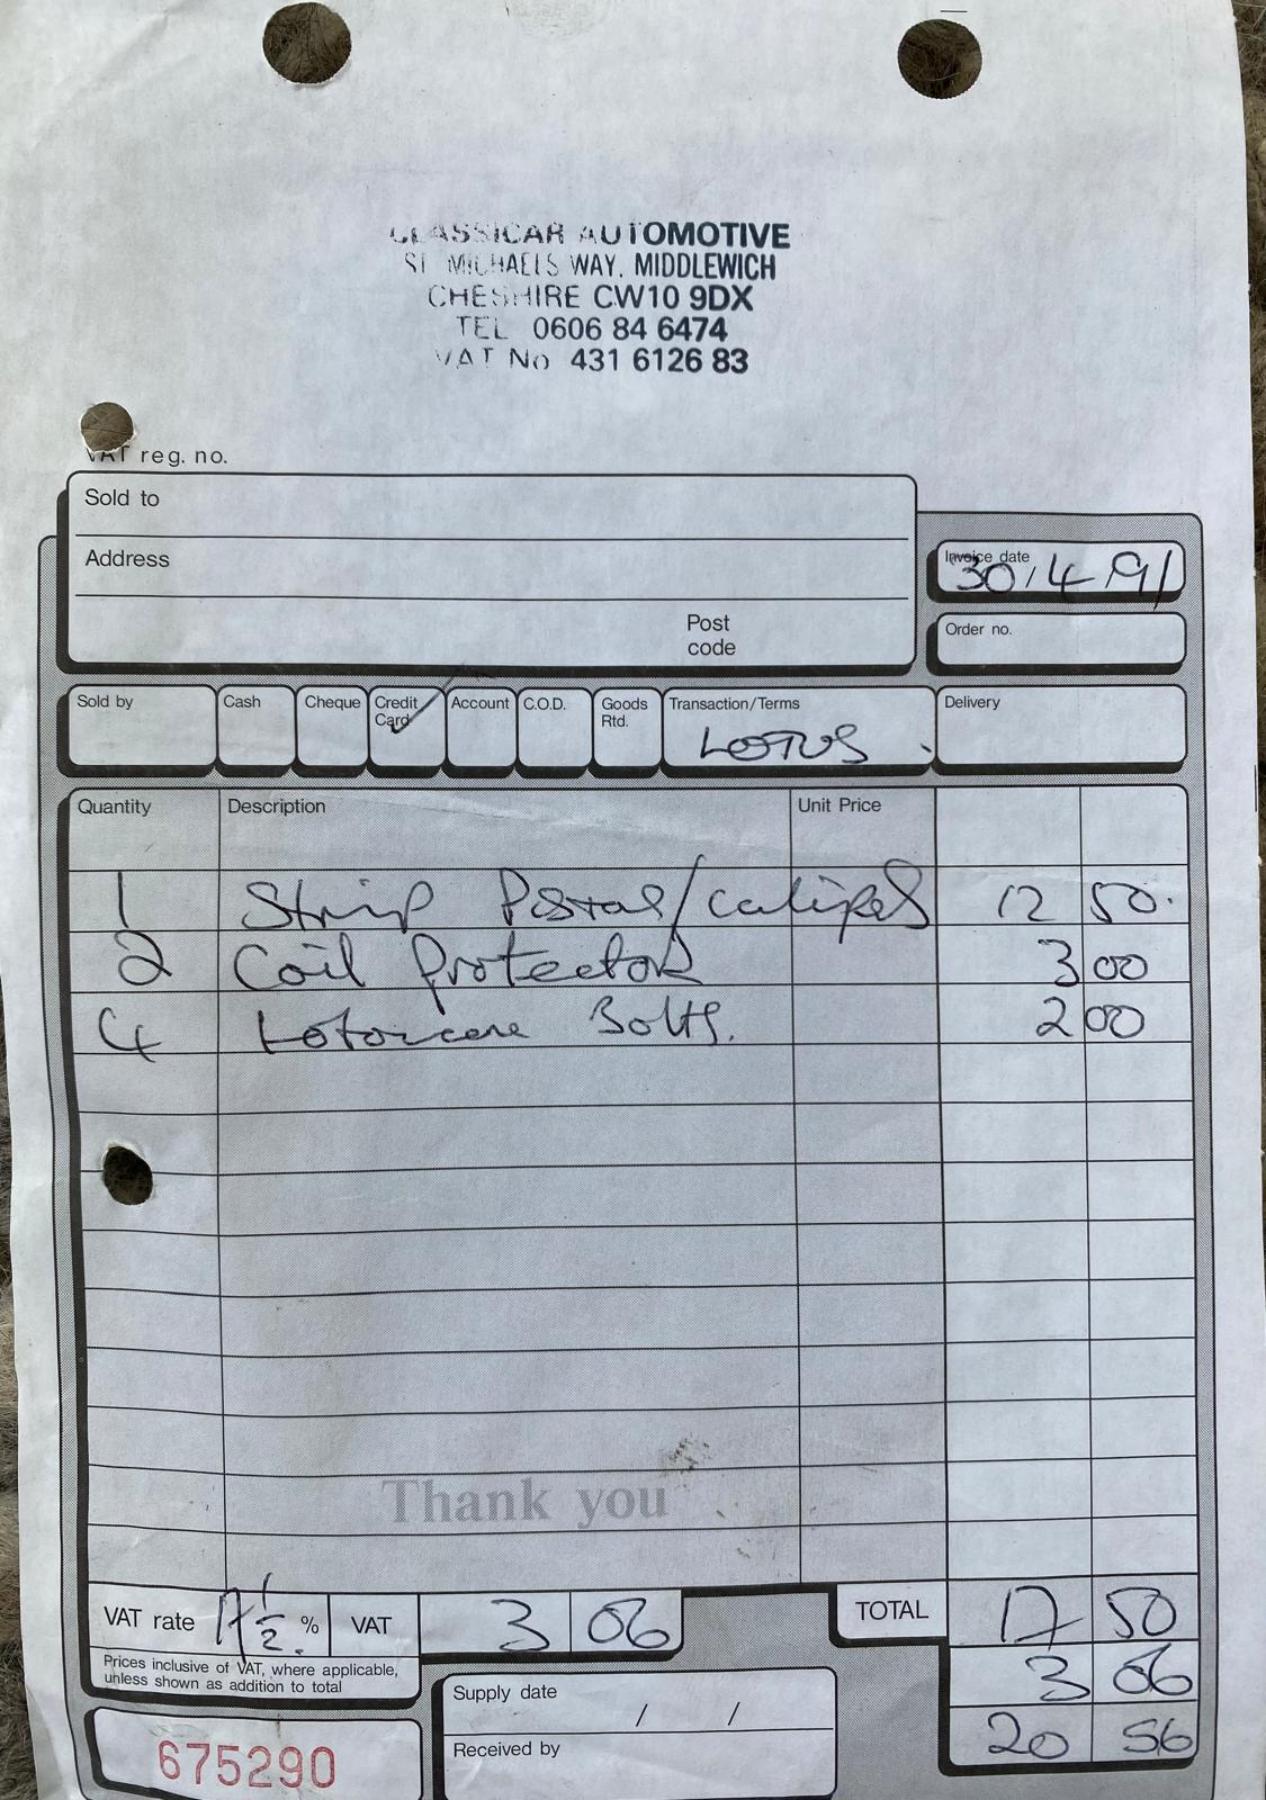 CLASSICAR AUTOMOTIVE
ST MICHAELS WAY, MIDDLEWICH
CHESHIRE CW10 9DX
TEL 0606 84 6474
VAT No 431 6126 83
VAT reg. no.
Sold to
Address
Invoice date
30/4 91
Post code
Order no.
Sold by Cash Cheque Credit Card Account C.O.D. Goods Rtd. Transaction/Terms Delivery
LOTUS
Quantity Description Unit Price
1 Strip /calipers 12 50.
2 Coil Protectors 3 00
4 Bolts. 2 00
Thank you
VAT rate 17 1/2 % VAT 3 06 TOTAL 17 50
Prices inclusive of VAT, where applicable, unless shown as addition to total
3 06
Supply date / /
20 56
Received by
675290